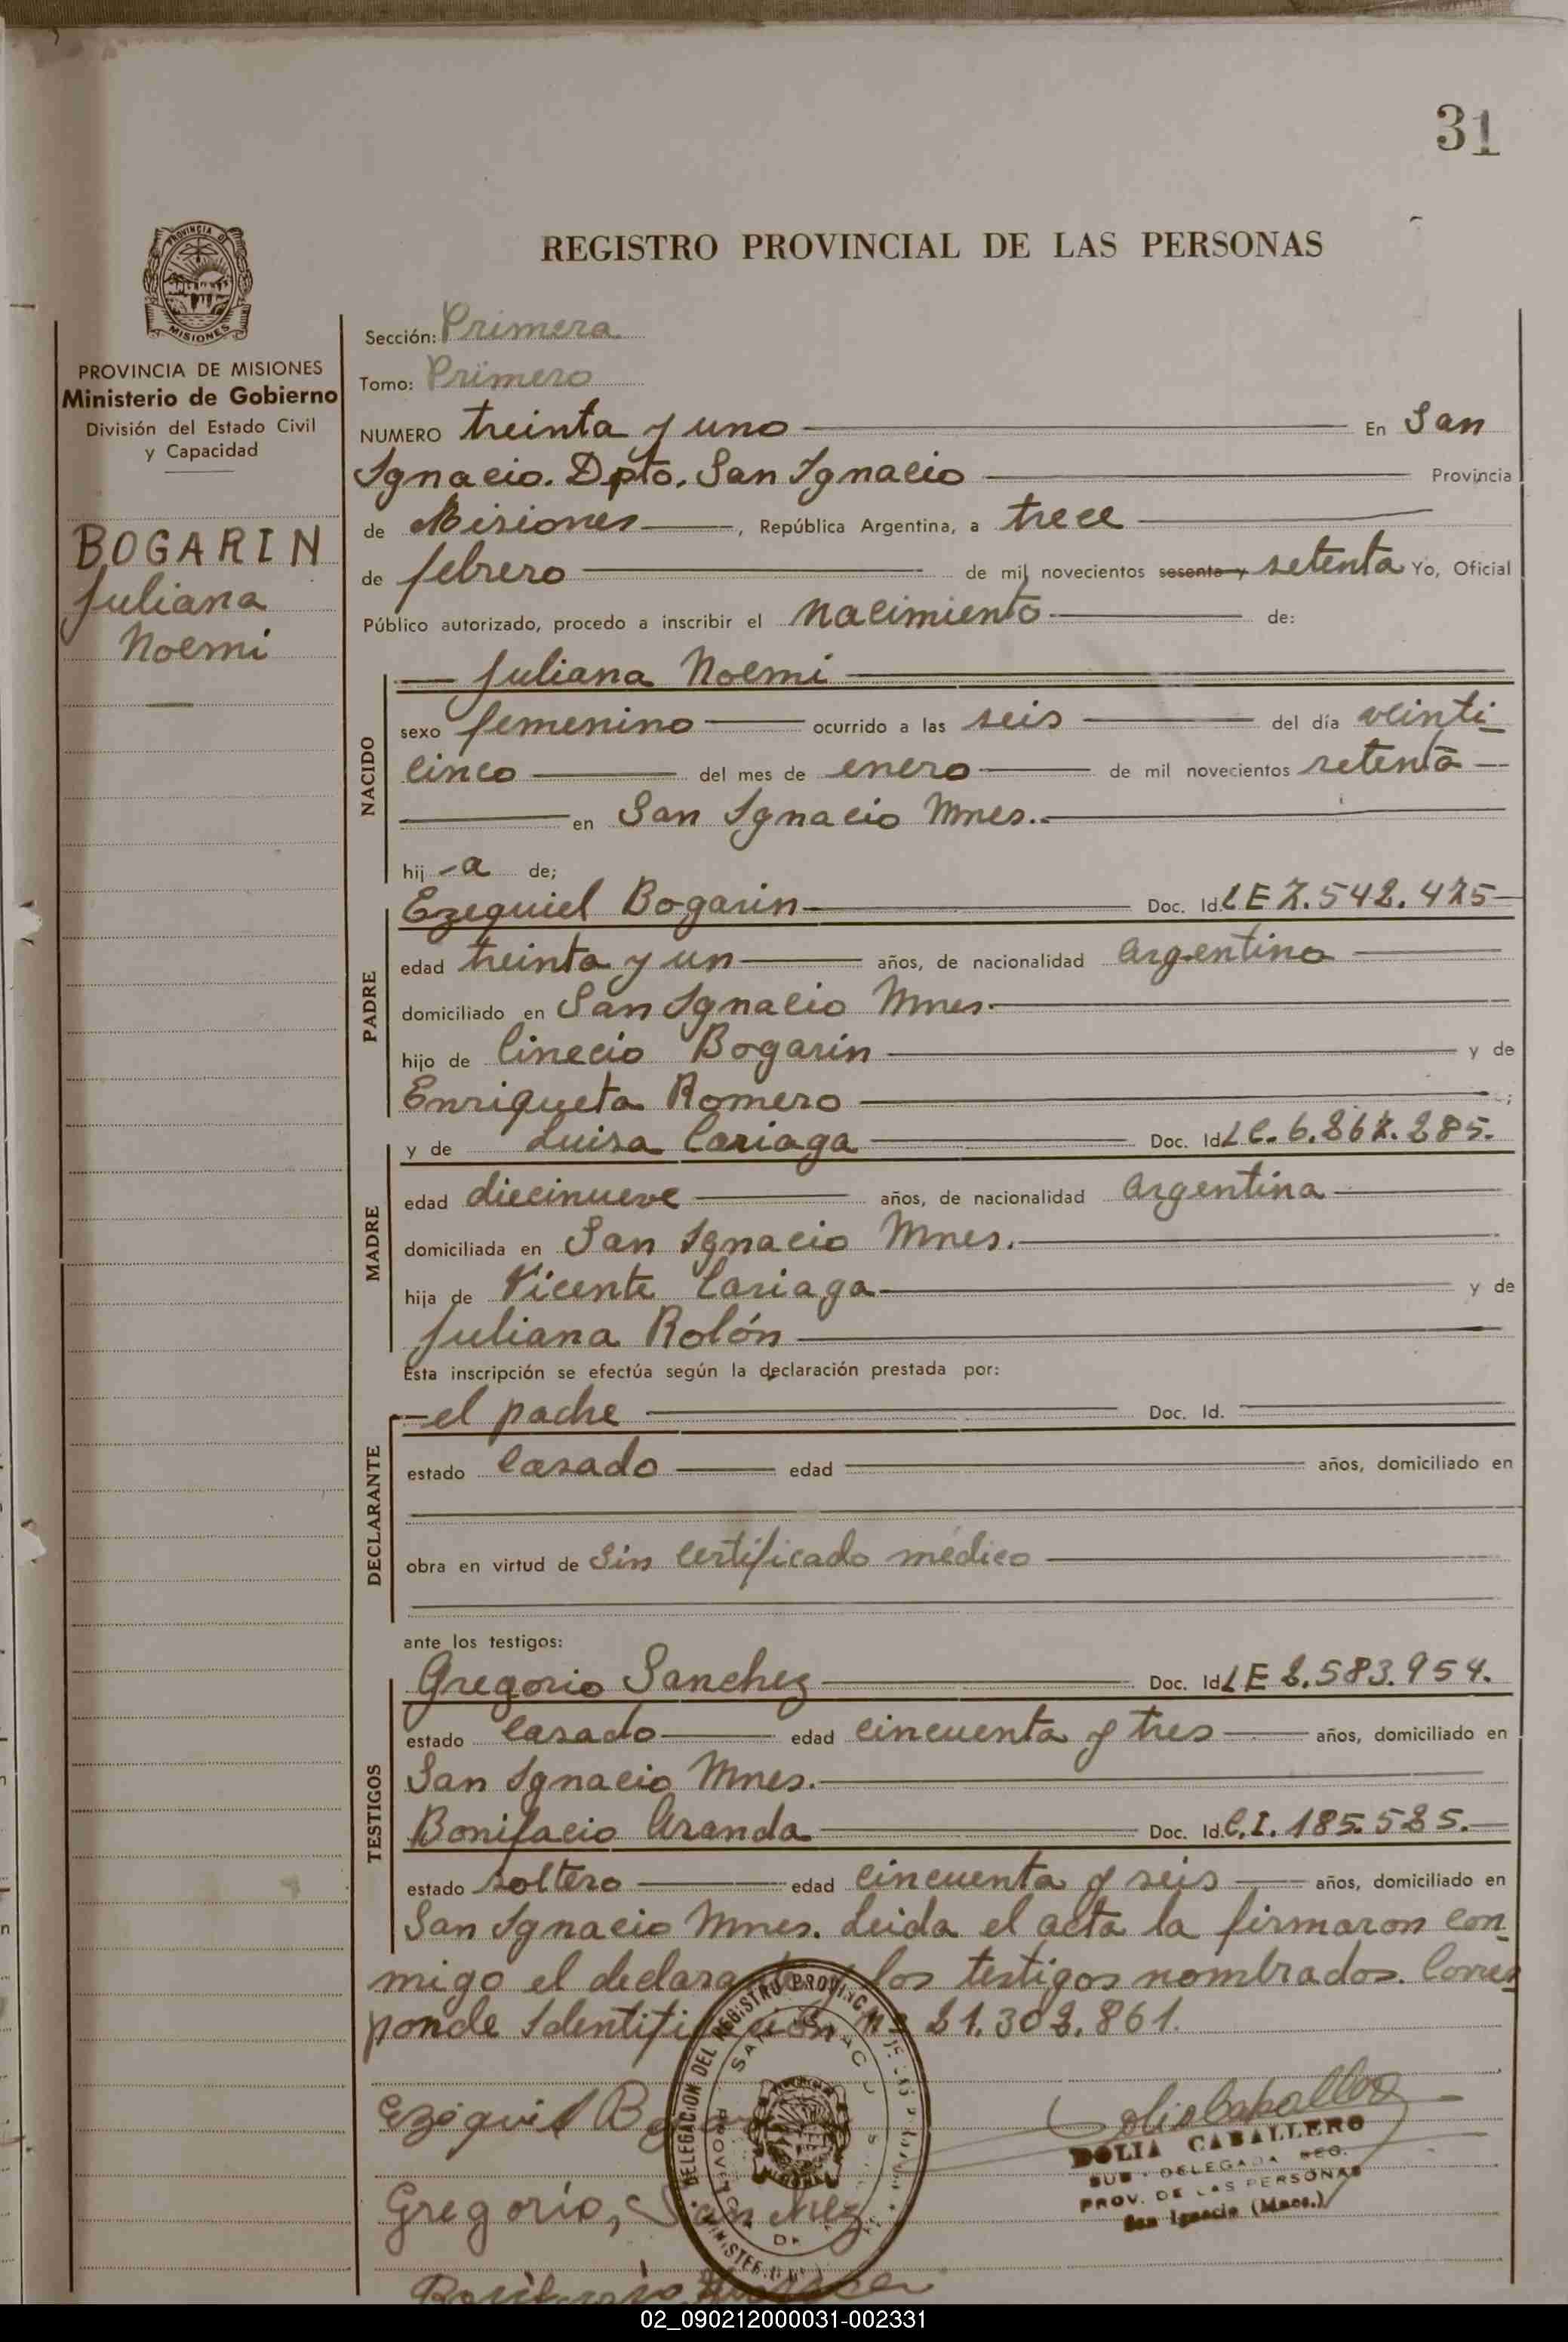 31
REGISTRO PROVINCIAL DE LAS PERSONAS
PROVINCIA DE MISIONES
Ministerio de Gobierno
División del Estado Civil
y Capacidad
BOGARIN
Juliana
Noemi
Sección: Primera
Tomo: Primero
NUMERO treinta y uno En San
Ignacio. Dpto. San Ignacio Provincia
de Misiones, República Argentina, a trece
de febrero de mil novecientos sesenta y setenta Yo, Oficial
Público autorizado, procedo a inscribir el nacimiento de:
NACIDO
Juliana Noemi
sexo femenino ocurrido a las seis del día veinti
cinco del mes de enero de mil novecientos setenta
en San Ignacio Mnes.
hij a de;
PADRE
Ezequiel Bogarin Doc. Id. LE 7.542.475
edad treinta y un años, de nacionalidad argentina
domiciliado en San Ignacio Mnes.
hijo de Cinecio Bogarin y de
Enriqueta Romero ;
MADRE
y de Luisa Cariaga Doc. Id. LC. 6.267.285.
edad diecinueve años, de nacionalidad argentina
domiciliada en San Ignacio Mnes.
hija de Vicente Cariaga y de
Juliana Rolón
Esta inscripción se efectúa según la declaración prestada por:
DECLARANTE
el padre Doc. Id.
estado casado edad años, domiciliado en
obra en virtud de sin certificado médico
ante los testigos:
TESTIGOS
Gregorio Sanchez Doc. Id. LE 2.583.954.
estado casado edad cincuenta y tres años, domiciliado en
San Ignacio Mnes.
Bonifacio Aranda Doc. Id. C.I. 185.525.
estado soltero edad cincuenta y seis años, domiciliado en
San Ignacio Mnes. Leida el acta la firmaron con
migo el declarante y los testigos nombrados. Corres
ponde Identificación Nº 21.302.861.
DELEGACION DEL REGISTRO PROVINCIAL DE LAS
SAN IGNACIO
Ezequiel Bogarin
Gregorio, Sanchez
DOLIA CABALLERO
SUB - DELEGADA REG.
PROV. DE LAS PERSONAS
San Ignacio (Mnes.)
02_090212000031-002331